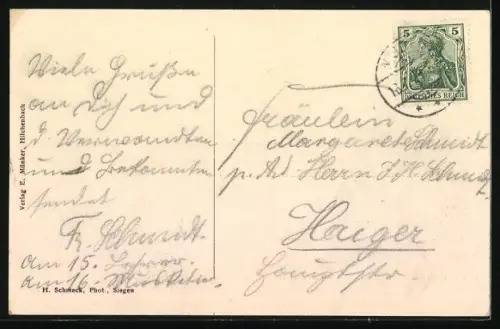 Viele Grüße
an Dich und
d. Verwandten
und Bekannten
sendet
Fr. Schmidt.
Am 15. Lehrer.
am 16. Musketier.
Verlag E. Münker, Hilchenbach
H. Schmeck, Phot., Siegen
5 5
DEUTSCHES REICH
Fräulein
Margarete Schmidt
p. Ad. Herrn J. H. Schmidt.
Haiger
Hauptstr.